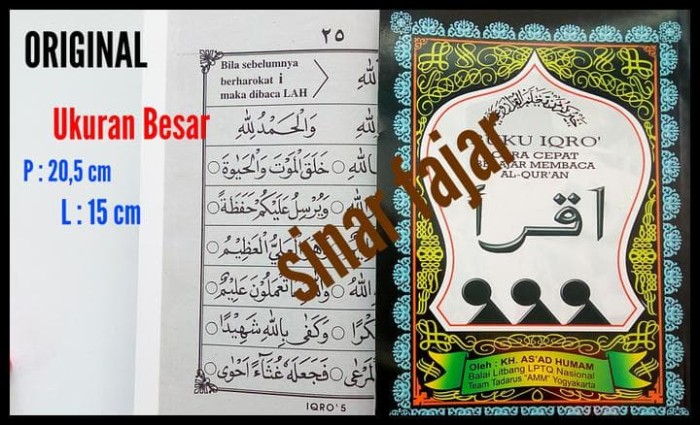 ORIGINAL
Ukuran Besar
P : 20,5 cm
L : 15 cm
٢٥
Bila sebelumnya
berharokat i
maka dibaca LAH
وَالْحَمْدُ لِلّٰهِ
خَلَقَ الْمَوْتَ وَالْحَيٰوةَ
وَيُرْسِلُ عَلَيْكُمْ حَفَظَةً
الْعَلِيُّ الْعَظِيْمُ
تَعْمَلُوْنَ عَلِيْمٌ
وَكَفٰى بِاللّٰهِ شَهِيْدًا
فَجَعَلَهٗ غُثَآءً اَحْوٰى
IQRO' 5
sinar fajar
KU IQRO'
CARA CEPAT
BELAJAR MEMBACA
AL-QUR'AN
اقرأ
Oleh : KH. AS'AD HUMAM
Balai Litbang LPTQ Nasional
Team Tadarus "AMM" Yogyakarta